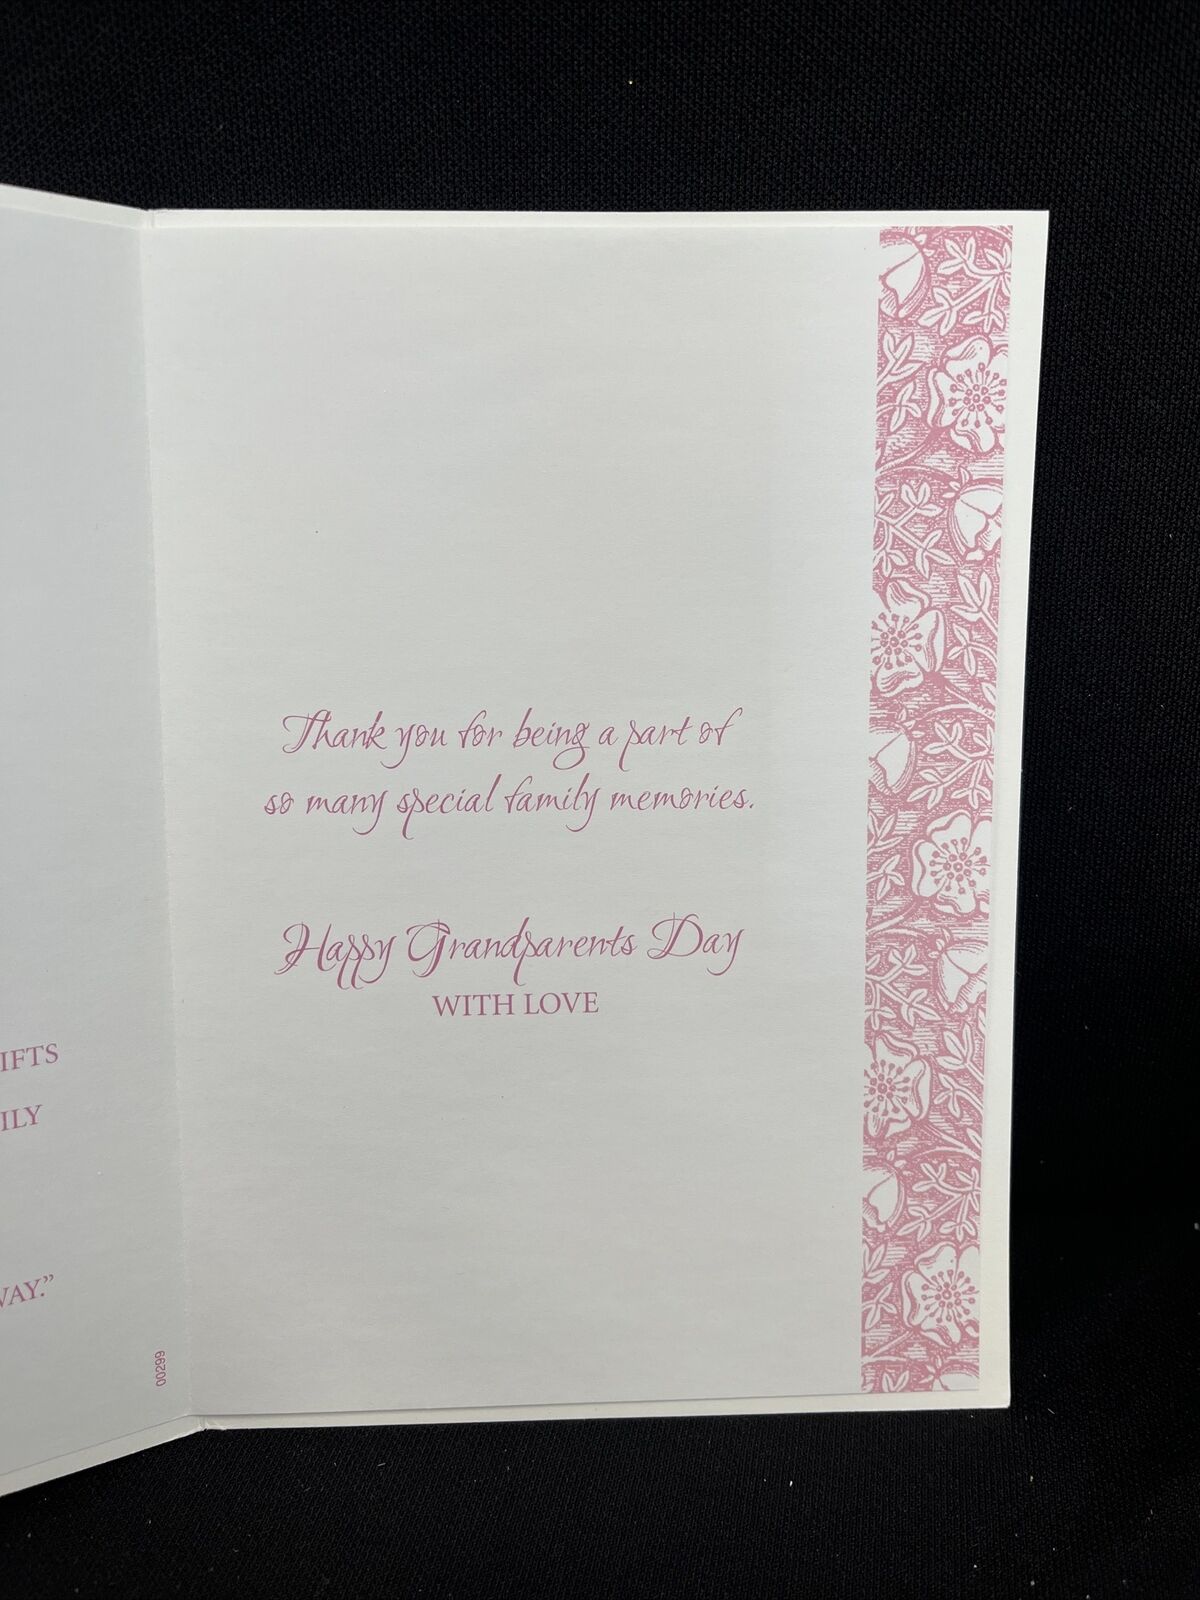 Thank you for being a part of
so many special family memories.
Happy Grandparents Day
WITH LOVE
IFTS
ILY
WAY.”
00299